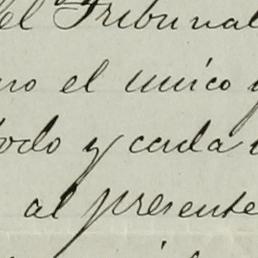 del Tribunal
no el unico y
todo y cada u
al presente